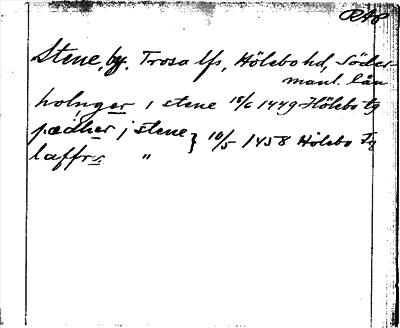 RAÄ
Stene, by. Trosa lfs, Hölebo hd, Söder-
manl. län
holnger i stene 15/6 1449 Hölebo tg
pædher i stene } 10/5 1458 Hölebo tg
laffris "